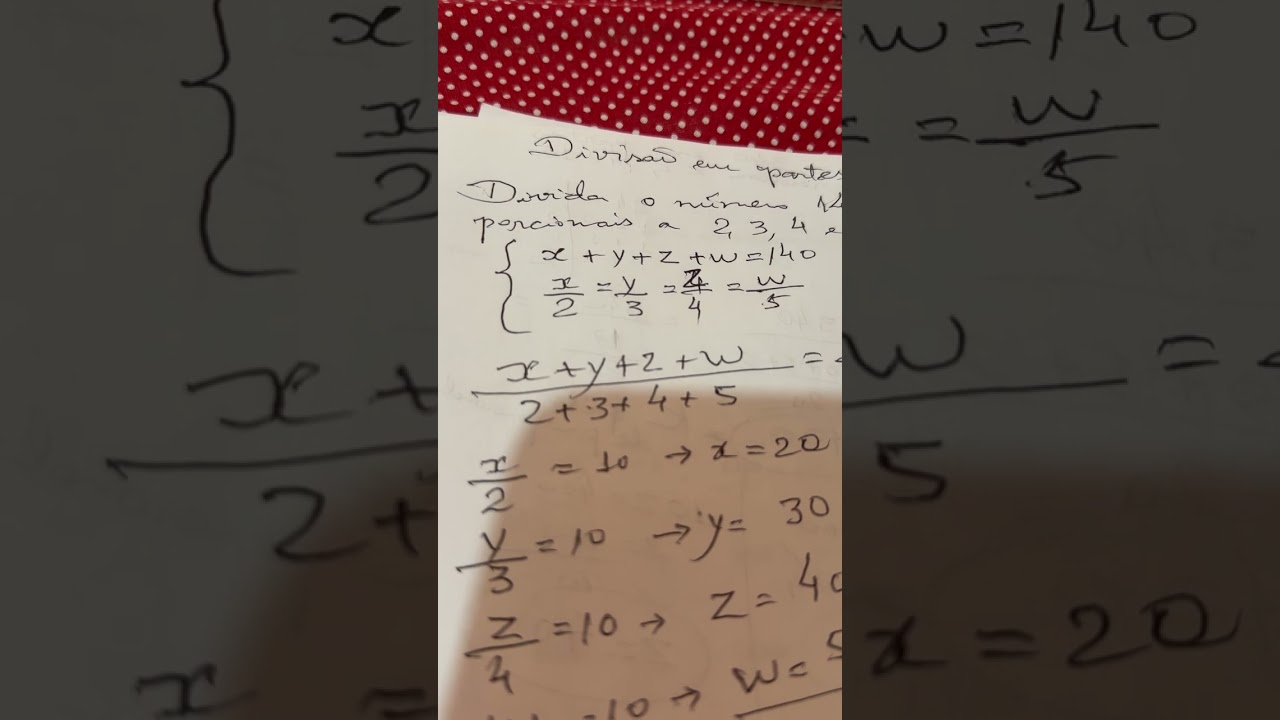 Divisão em partes
Divida o número 14
porcionais a 2, 3, 4 e
x + y + z + w = 140
x/2 = y/3 = z/4 = w/5
x + y + z + w / 2 + 3 + 4 + 5 =
x/2 = 10 → x = 20
y/3 = 10 → y = 30
z/4 = 10 → z = 40
= 10 → w = 5